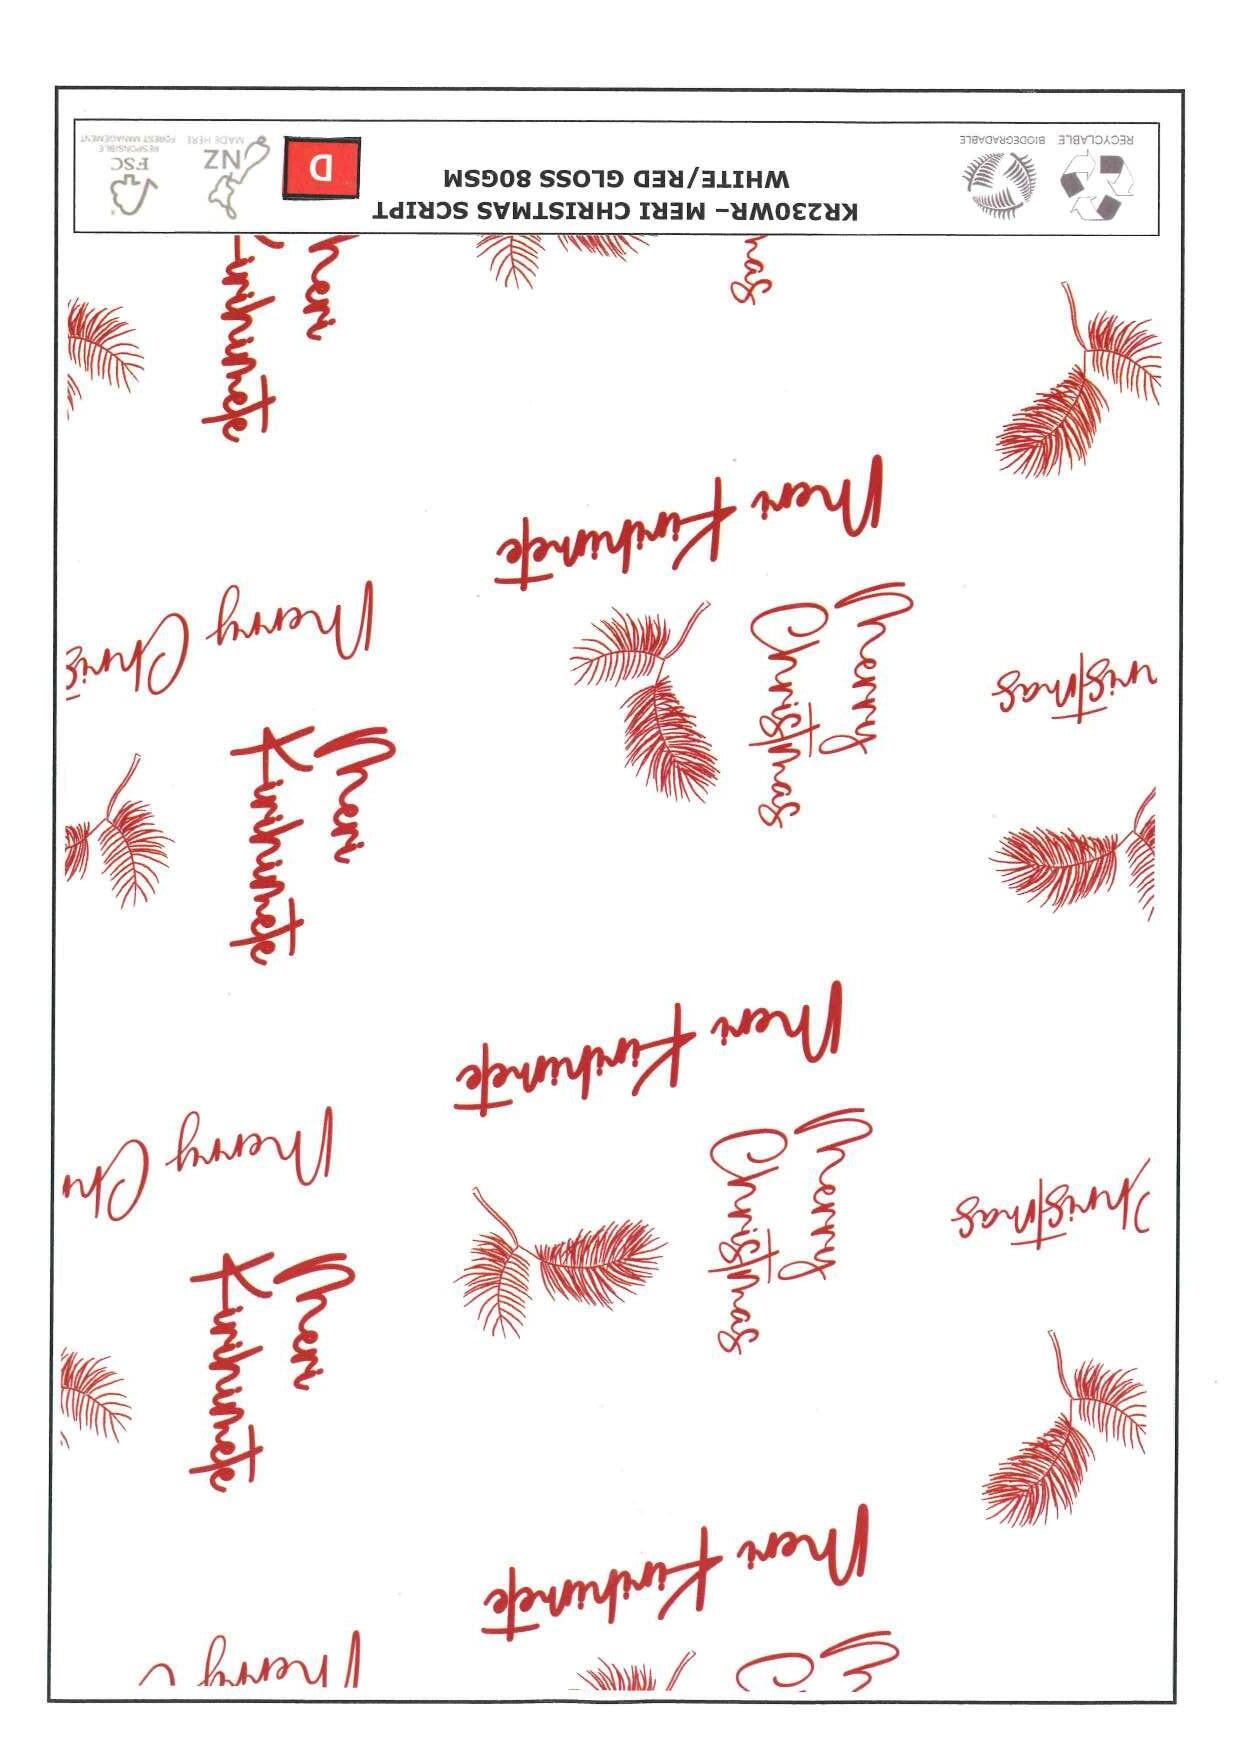 Merry
Meri Kirihimete
Meri
Kirihimete
hristmas
Merry
Christmas
Merry Chr
Meri Kirihimete
Meri
Kirihimete
ristmas
Merry
Christmas
Merry Chris
Meri Kirihimete
eri
irihimete
mas
KR230WR– MERI CHRISTMAS SCRIPT
WHITE/RED GLOSS 80GSM
RECYCLABLE
BIODEGRADABLE
D
NZ
MADE HERE
FSC
RESPONSIBLE
FOREST MANAGEMENT